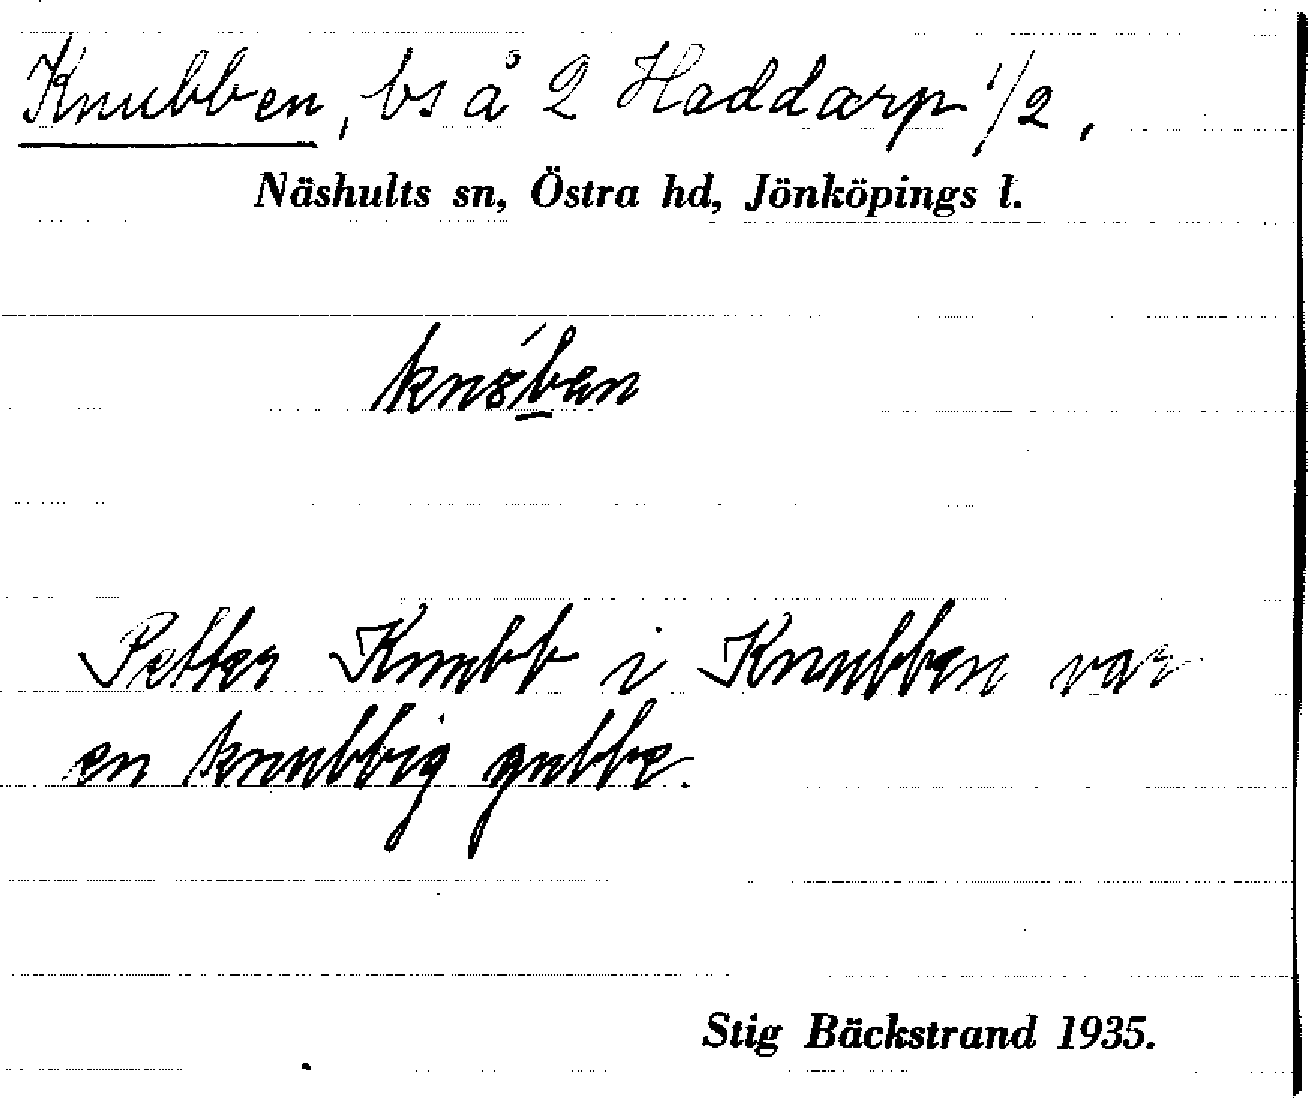 Knubben, bs å 2 Haddarp 1/2,
Näshults sn, Östra hd, Jönköpings l.
kn8́b̲en
Petter Knubb i Knubben var
en knubbig gubbe.
Stig Bäckstrand 1935.